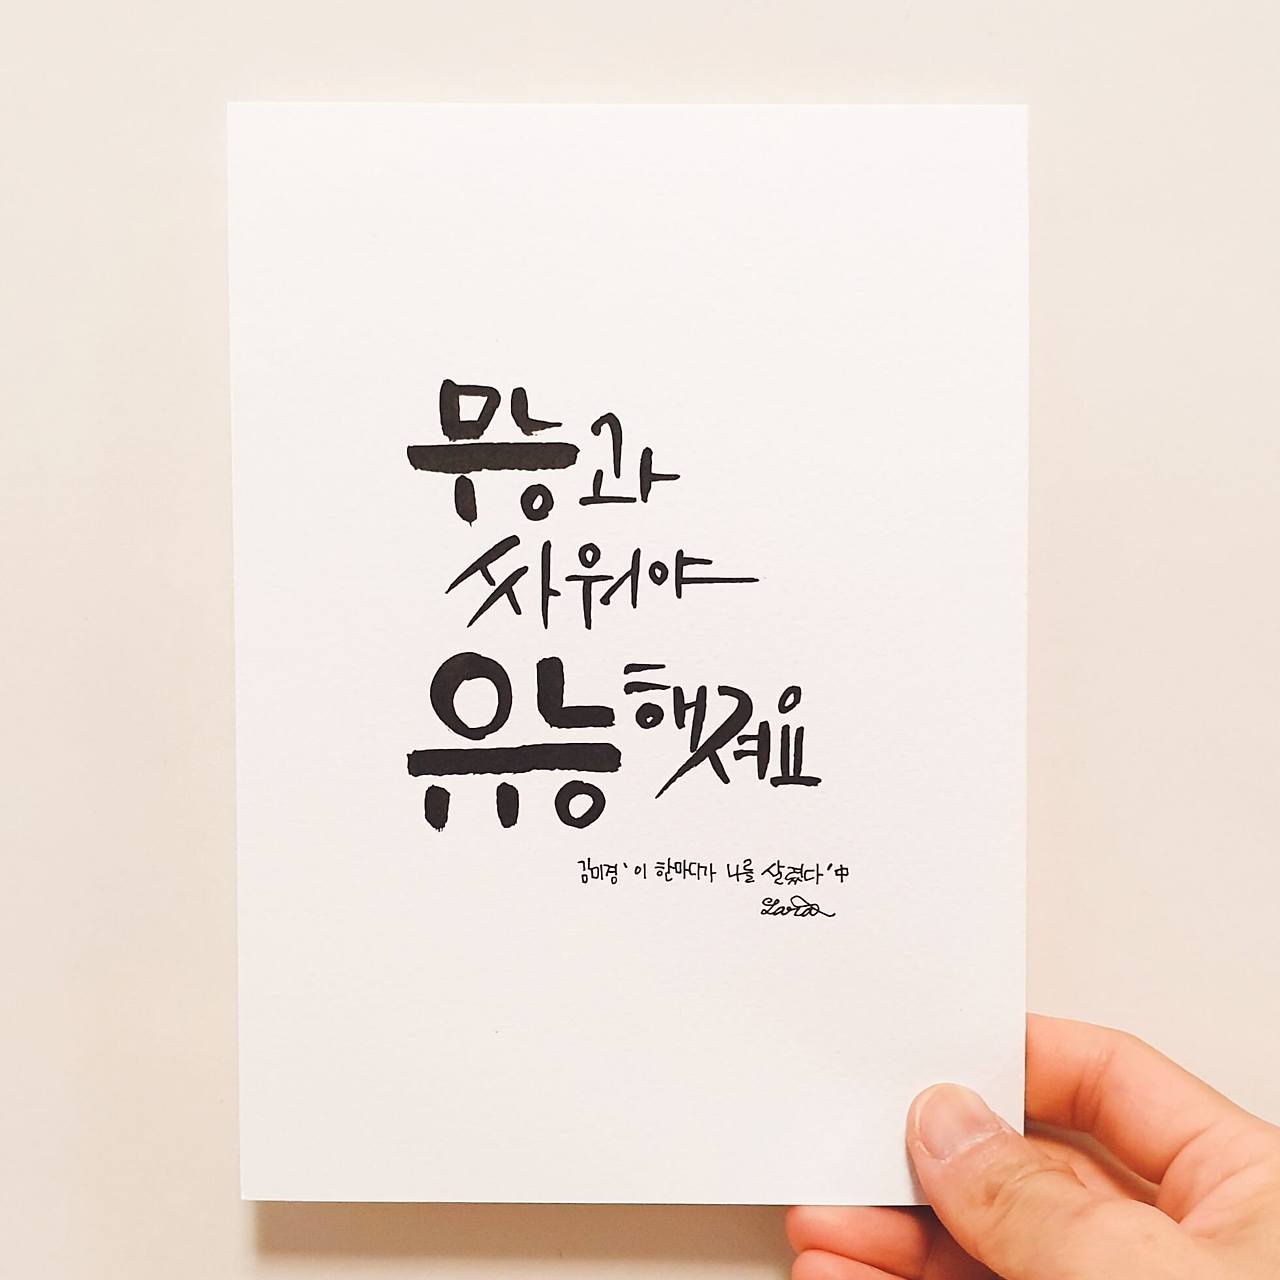 무능과
싸워야
유능해져요
김미경 '이 한마디가 나를 살렸다' 中